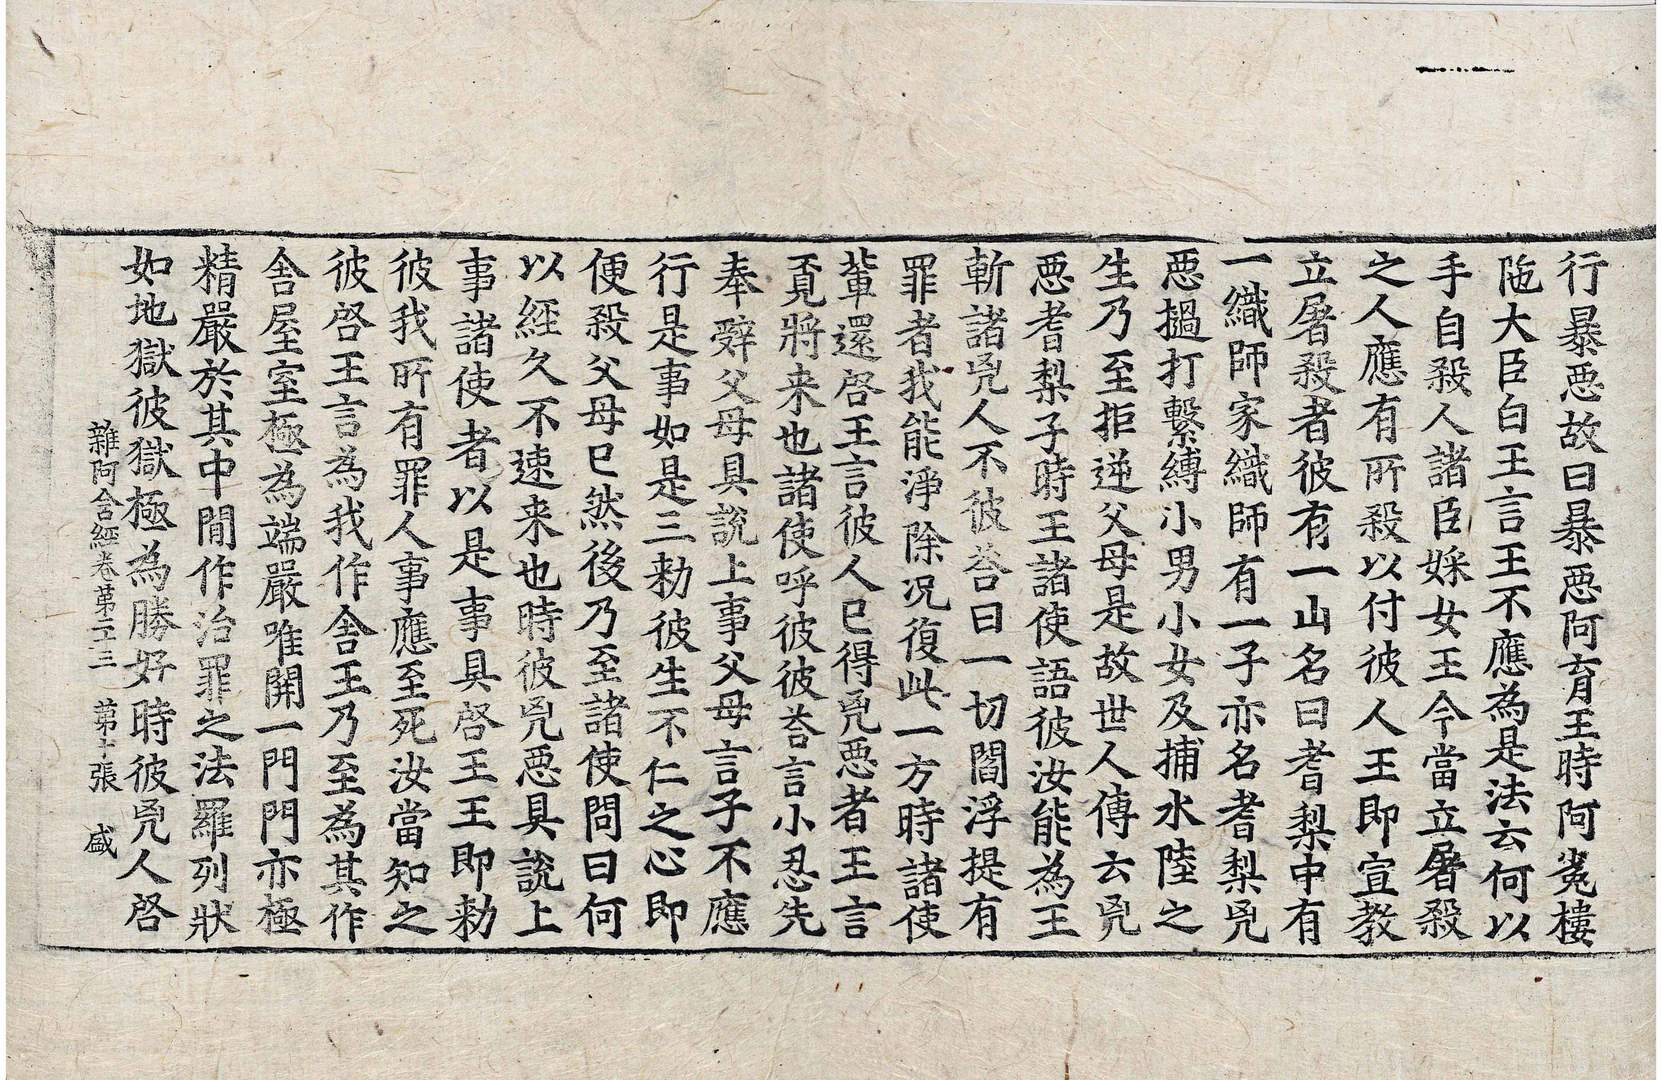 行暴惡故曰暴惡阿育王時阿㝹樓
陁大臣白王言王不應為是法云何以
手自殺人諸臣婇女王今當立屠殺
之人應有所殺以付彼人王即宣教
立屠殺者彼有一山名曰耆梨中有
一織師家織師有一子亦名耆梨兇
惡撾打繫縛小男小女及捕水陸之
生乃至拒逆父母是故世人傳云兇
惡耆梨子時王諸使語彼汝能為王
斬諸兇人不彼荅曰一切閻浮提有
罪者我能淨除况復此一方時諸使
軰還啓王言彼人已得兇惡者王言
覔將来也諸使呼彼彼荅言小忍先
奉辤父母具說上事父母言子不應
行是事如是三勑彼生不仁之心即
便殺父母已然後乃至諸使問曰何
以經久不速来也時彼兇惡具說上
事諸使者以是事具啓王王即勑
彼我所有罪人事應至死汝當知之
彼啓王言為我作舍王乃至為其作
舍屋室極為端嚴唯開一門門亦極
精嚴於其中間作治罪之法羅列狀
如地獄彼獄極為勝好時彼兇人啓
雜阿含經卷第二十三 第十張 盛